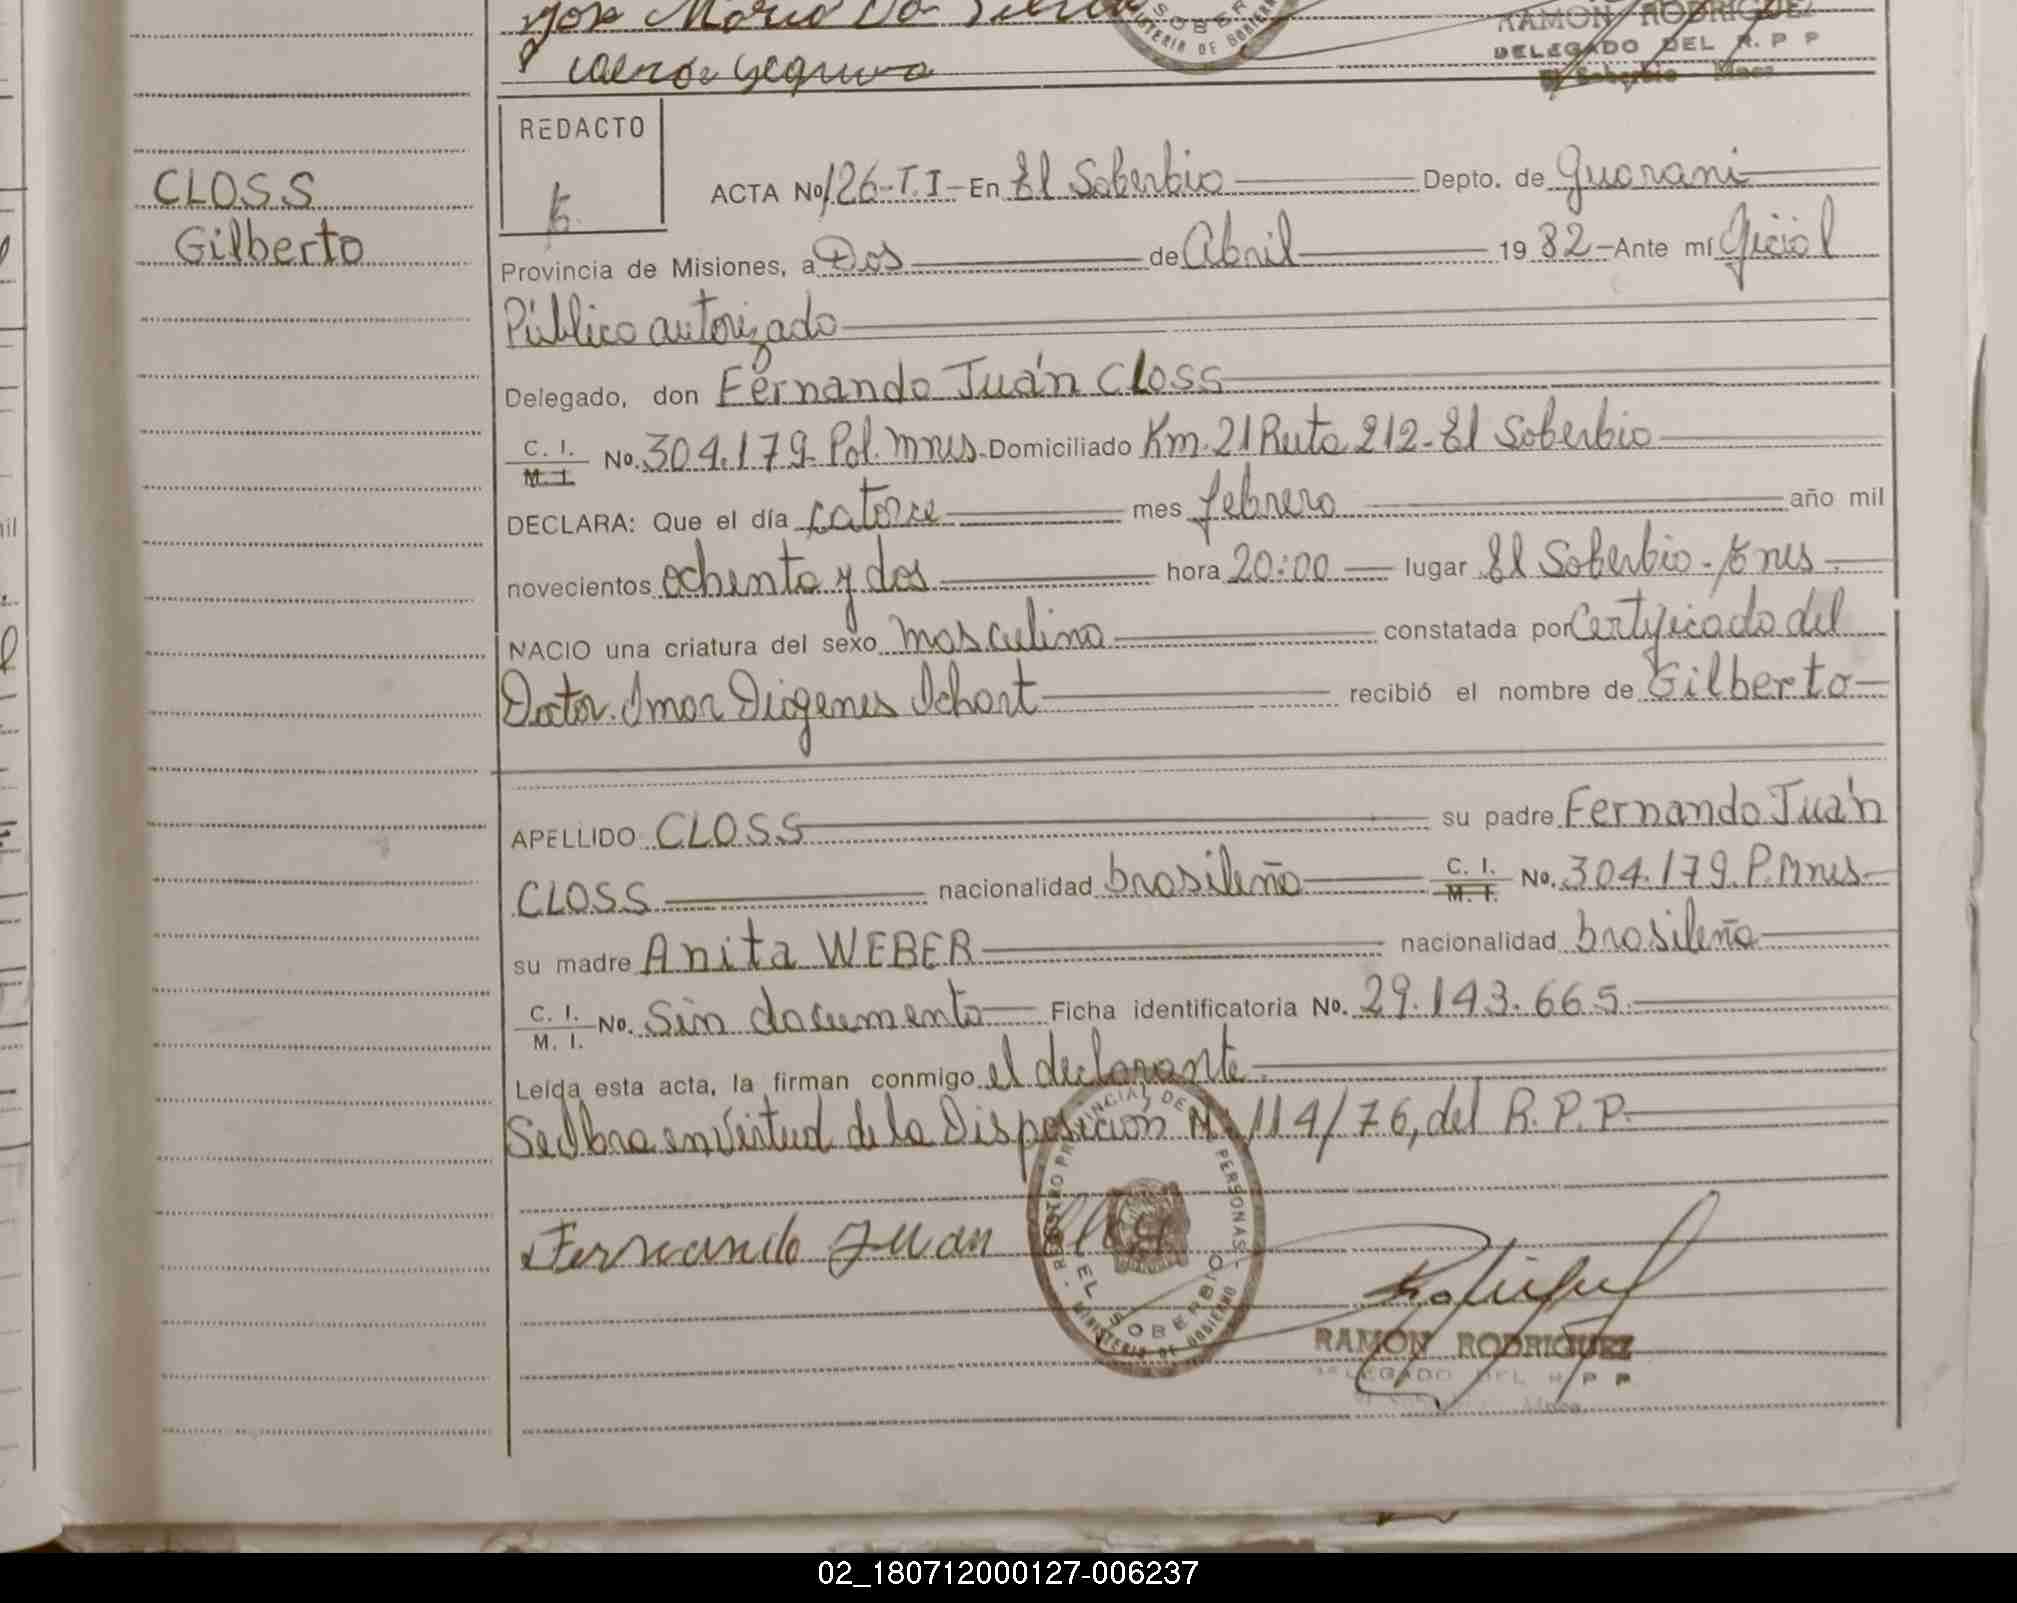 RAMON RODRIGUEZ
DELEGADO DEL R. P P
CLOSS
Gilberto
REDACTO
ACTA No 126-T.I- En El Soberbio Depto. de Guarani
Provincia de Misiones, a Dos de Abril 1982-Ante mí Oficial
Público autorizado
Delegado, don Fernando Juán CLOSS
C. I. M. I. No. 304.179-Pol. Mnes. Domiciliado Km. 21 Ruta 212-El Soberbio
DECLARA: Que el día catorce mes febrero año mil
novecientos ochenta y dos hora 20:00 lugar El Soberbio-
NACIO una criatura del sexo masculino constatada por Certificado del
Doctor. Omar Diogenes recibió el nombre de Gilberto
APELLIDO CLOSS su padre Fernando Juán
CLOSS nacionalidad brasileño C. I. M. I. No. 304.179.P.Mnes
su madre Anita WEBER nacionalidad brasileña
C. I. M. I. No. Sin documento Ficha identificatoria No. 29.143.665.
Leída esta acta, la firman conmigo el declarante.
Se Obra en Virtud de la Disposición Nº 114/76, del R.P.P.
Fernando Juan Closs
REGISTRO PROVINCIAL DE PERSONAS
EL SOBERBIO
MINISTERIO DE GOBIERNO
RAMON RODRIGUEZ
DELEGADO DEL R P P
02_180712000127-006237